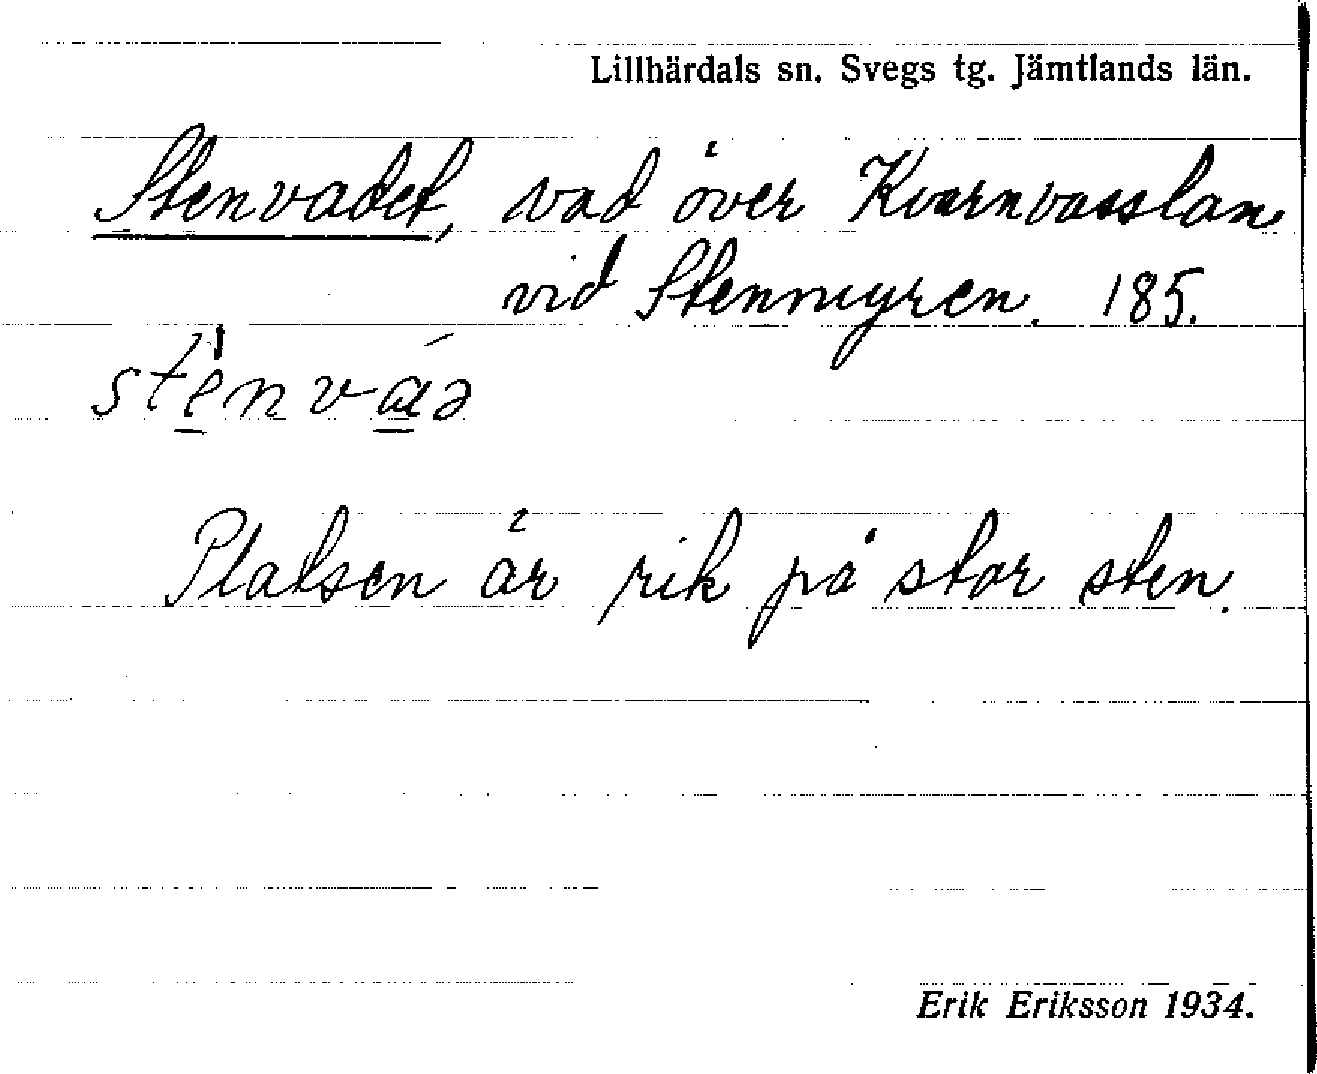 Lillhärdals sn. Svegs tg. Jämtlands län.
Stenvadet, vad över Kvarnvasslan
vid Stenmyren. 185.
stenváə
Platsen är rik på stor sten.
Erik Eriksson 1934.